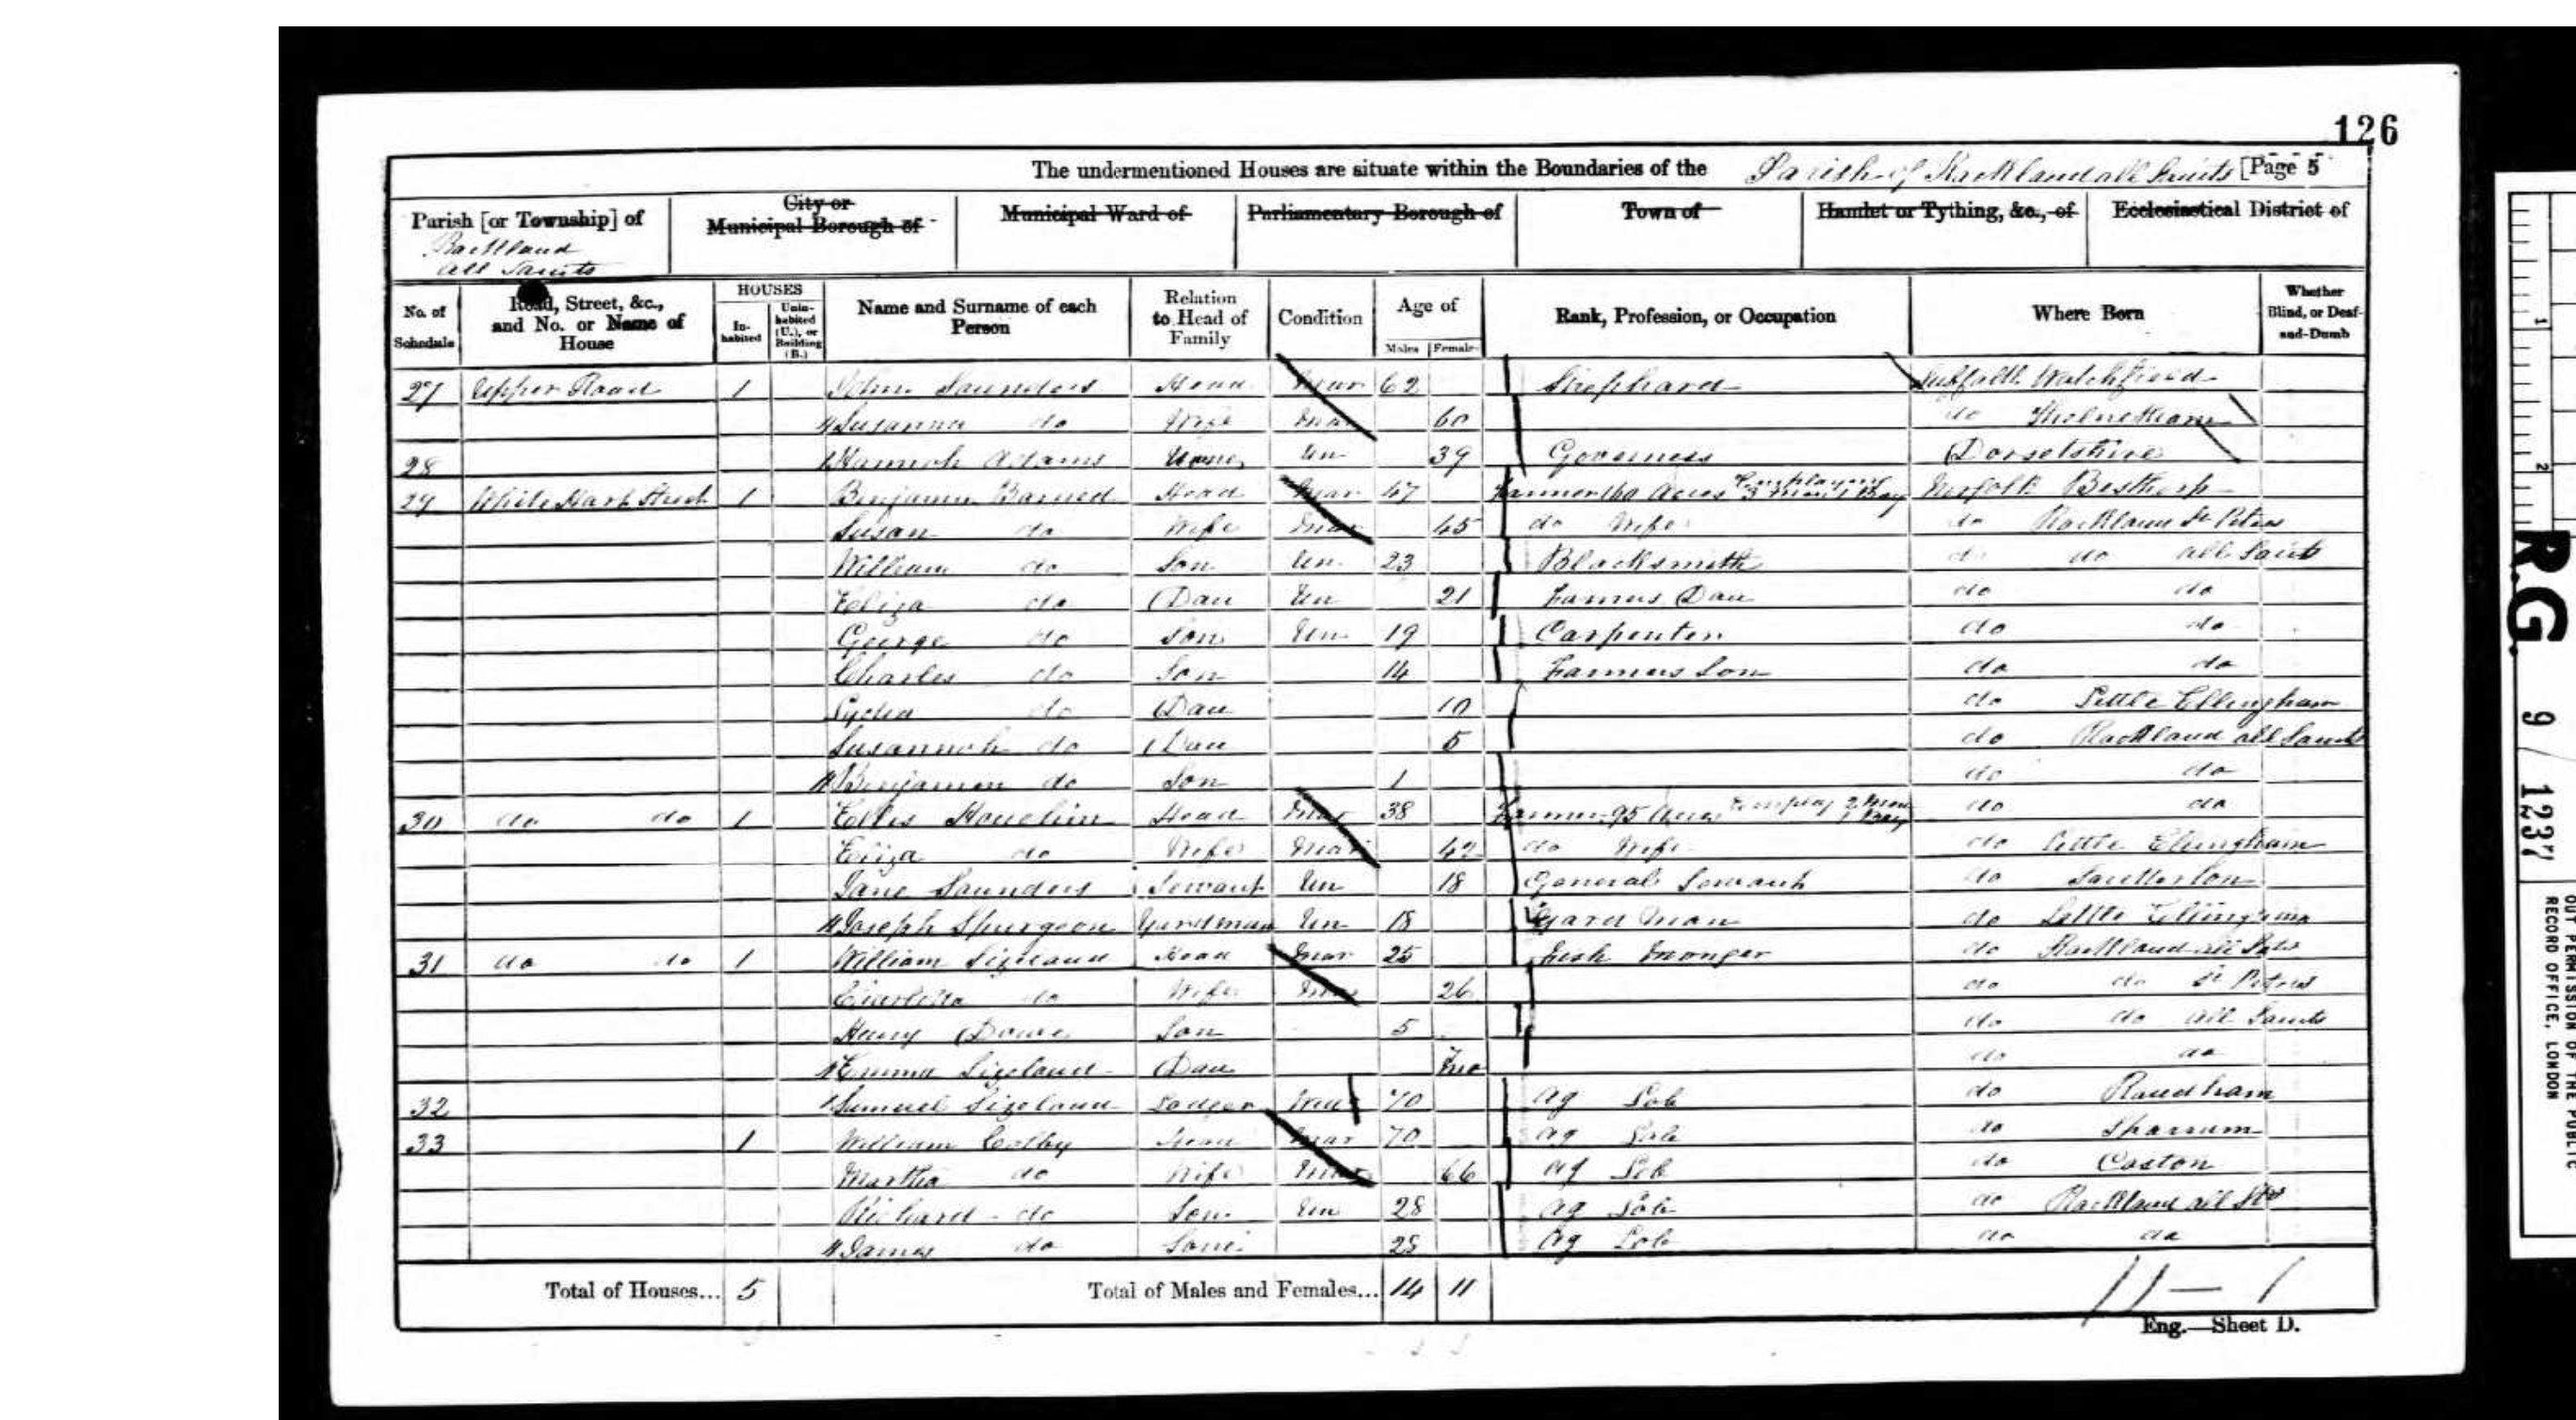 126
The undermentioned Houses are situate within the Boundaries of the Parish of Rockland all Saints [Page 5
Parish [or Township] of
Rockland
all Saints
City or
Municipal Borough of
Municipal Ward of
Parliamentary Borough of
Town of
Hamlet or Tything, &c., of
Ecclesiastical District of
No. of Schedule
Road, Street, &c., and No. or Name of House
HOUSES
In-habited
Unin-habited (U.), or Building (B.)
Name and Surname of each Person
Relation to Head of Family
Condition
Age of
Males Females
Rank, Profession, or Occupation
Where Born
Whether Blind, or Deaf-and-Dumb
27 Upper Road 1 John Saunders Head Mar 62 Shephard Suffolk
Susanna do Wife Mar 60 do
28 Hannah Adams Un 39 Governess Dorsetshire
29 White Hart Street 1 Benjamin Barned Head Mar 47 Farmer Acres Employing 3 Men 1 Boy Norfolk Besthorp
Susan do Wife Mar 45 do Wife do Rockland St Peters
William do Son Un 23 Blacksmith do do all Saints
Eliza do Dau Un 21 Farmers Dau do do
George do Son Un 19 Carpenter do do
Charles do Son 14 Farmers Son do do
Lydia do Dau 10 do Little Ellingham
Susannah do Dau 5 do Rockland all Saints
Benjamin do Son 1 do do
30 do do 1 Head Mar 38 Farmer 95 Acres Employ 2 Men 1 Boy do do
Eliza do Wife Mar 42 do Wife do Little Ellingham
Jane Saunders Servant Un 18 General Servant do
Joseph Spurgeon Yardman Un 18 Yard Man do Little Ellingham
31 do do 1 William Head Mar 25 Fish Monger do Rockland all Sts
Charlotte do Wife Mar 26 do do St Peters
Henry Son 5 do do all Saints
Emma Dau 7 mo do do
32 Samuel Lodger 70 Ag Lab do
33 1 William Colby Head Mar 70 Ag Lab do
Martha do Wife Mar 66 Ag Lab do Caston
Richard do Son Un 28 Ag Lab do Rockland all Sts
James do Son 25 Ag Lab do do
Total of Houses... 5
Total of Males and Females... 14 11
11 — 1
Eng.—Sheet D.
R.G. 9 / 1237
OUT PERMISSION OF THE PUBLIC
RECORD OFFICE, LONDON
1
2